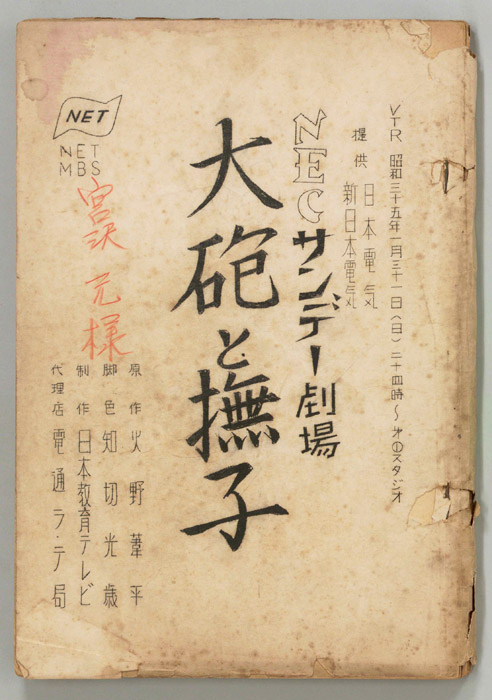 VTR 昭和三十五年一月三十一日(日)二十四時〜 オ①スタジオ
提供 日本電気
新日本電気
NECサンデー劇場
大砲と撫子
NET
NET
MBS
宮沢 元様
原作 火野葦平
脚色 知切光歳
制作 日本教育テレビ
代理店 電通ラ・テ局